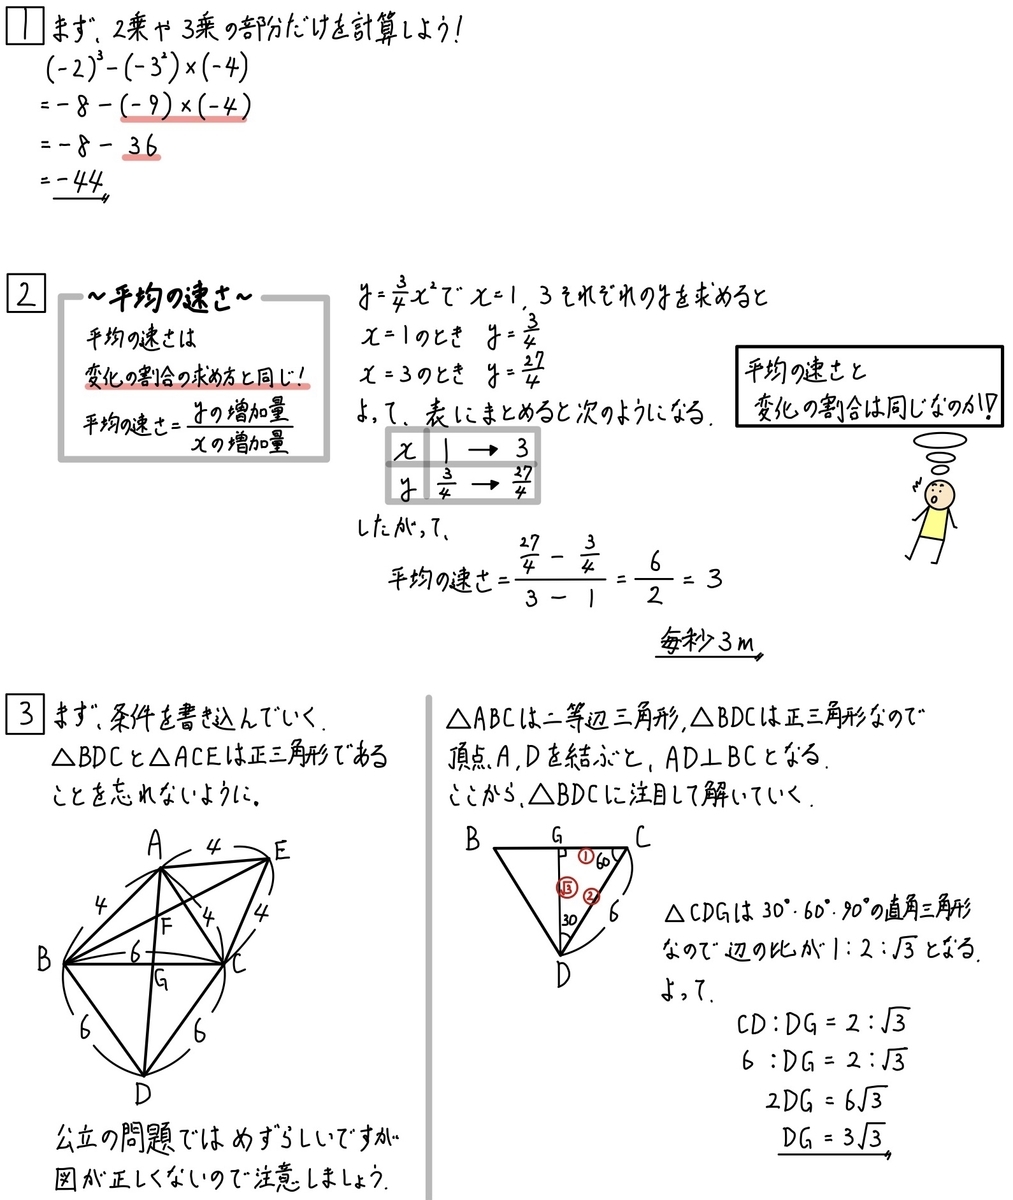 1 まず、2乗や3乗の部分だけを計算しよう!
(-2)³-(-3²)×(-4)
=-8-(-9)×(-4)
=-8-36
=-44
2
~平均の速さ~
平均の速さは
変化の割合の求め方と同じ!
平均の速さ=yの増加量/xの増加量
y=3/4x²で x=1, 3それぞれのyを求めると
x=1のとき y=3/4
x=3のとき y=27/4
よって、表にまとめると次のようになる.
x 1 → 3
y 3/4 → 27/4
したがって、
平均の速さ=(27/4 - 3/4)/(3 - 1) = 6/2 = 3
毎秒3m
平均の速さと
変化の割合は同じなのか!?
3 まず、条件を書き込んでいく.
△BDCと△ACEは正三角形である
ことを忘れないように。
A 4 E
4 4 4
F
B 6 C
G
6 6
D
公立の問題ではめずらしいですが
図が正しくないので注意しましょう.
△ABCは二等辺三角形,△BDCは正三角形なので
頂点A,Dを結ぶと、AD⊥BCとなる.
ここから、△BDCに注目して解いていく.
B G C
① 60
√3 ② 6
30
D
△CDGは30°・60°・90°の直角三角形
なので辺の比が1:2:√3となる.
よって.
CD:DG=2:√3
6:DG=2:√3
2DG=6√3
DG=3√3